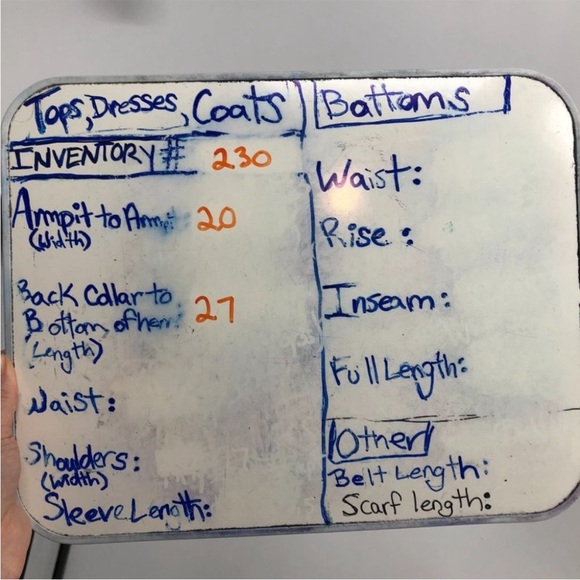 Tops, Dresses, Coats
INVENTORY # 230
Armpit to Armpit 20
(Width)
Back Collar to
Bottom of hem: 27
(Length)
Waist:
Shoulders:
(Width)
Sleeve Length:
Bottoms
Waist:
Rise:
Inseam:
Full Length:
Other
Belt Length:
Scarf length: